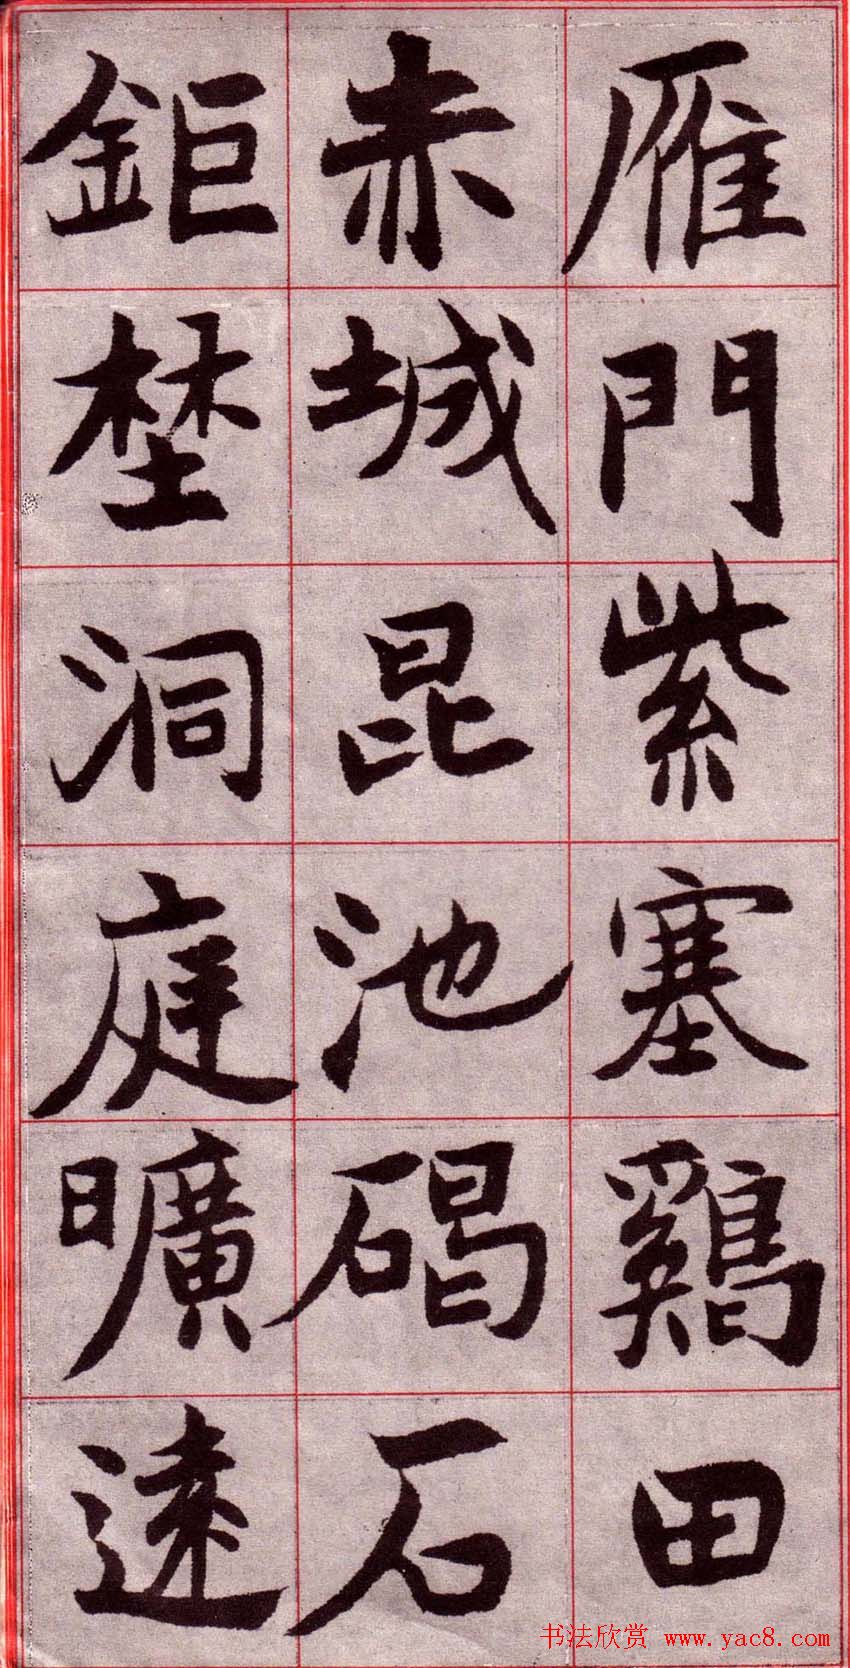 雁門紫塞鷄田
赤城昆池碣石
鉅埜洞庭曠遠
书法欣赏 www.yac8.com